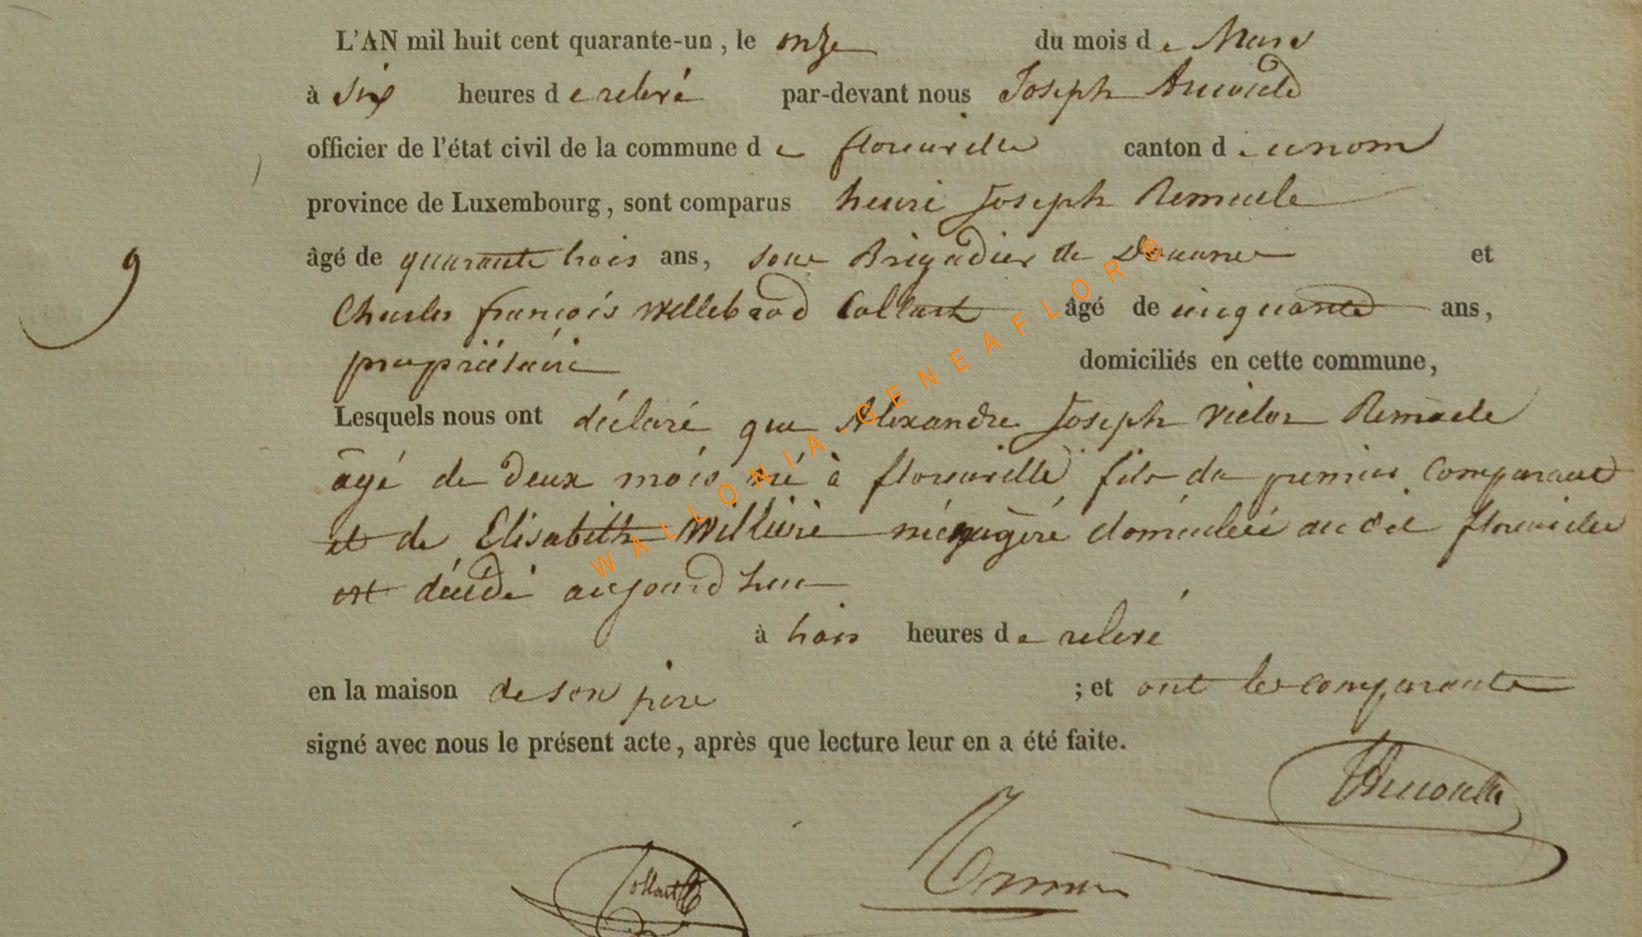 L'AN mil huit cent quarante-un, le onze du mois de Mars
à six heures de relevé par-devant nous Joseph Arnould
officier de l'état civil de la commune de florenville canton de ce nom
province de Luxembourg, sont comparus henri Joseph Remacle
âgé de quarante trois ans, sous Brigadier de Douane et
9
Charles françois Willebrod Collart âgé de cinquante ans,
propriétaire domiciliés en cette commune,
Lesquels nous ont déclaré que Alexandre Joseph Victor Remacle
âgé de deux mois né à florenville fils du premier Comparant
et de Elisabeth Willière ménagère domiciliée au dit florenville
est décédé aujourd'hui
à trois heures de relevé
en la maison de son père ; et ont les comparants
signé avec nous le présent acte, après que lecture leur en a été faite.
Collart
WALLONIA GENEAFLOR®